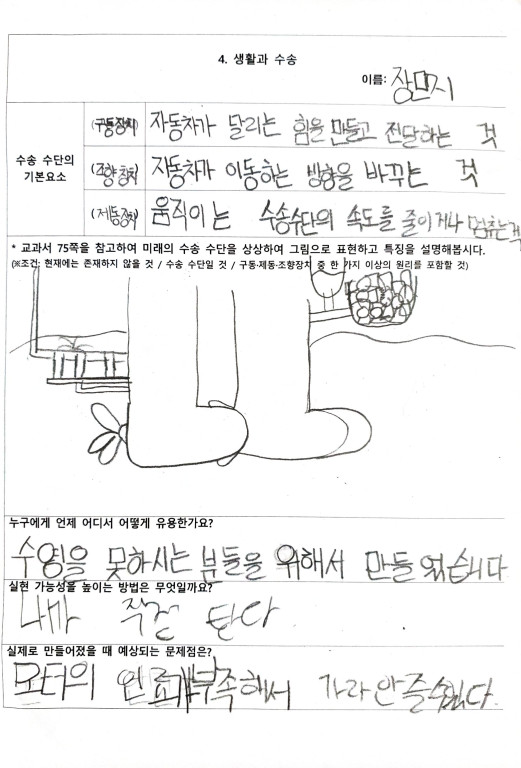 4. 생활과 수송
이름: 장민시
수송 수단의 기본요소
(구동장치) 자동차가 달리는 힘을 만들고 전달하는 것
(조향장치) 자동차가 이동하는 방향을 바꾸는 것
(제동장치) 움직이는 수송수단의 속도를 줄이거나 멈추는 것
* 교과서 75쪽을 참고하여 미래의 수송 수단을 상상하여 그림으로 표현하고 특징을 설명해봅시다.
(※조건: 현재에는 존재하지 않을 것 / 수송 수단일 것 / 구동·제동·조향장치 중 한 가지 이상의 원리를 포함할 것)
누구에게 언제 어디서 어떻게 유용한가요?
수영을 못하시는 분들을 위해서 만들었습니다
실현 가능성을 높이는 방법은 무엇일까요?
내가 직접 된다
실제로 만들어졌을 때 예상되는 문제점은?
모터의 연료가 부족해서 가라안즐수있다.